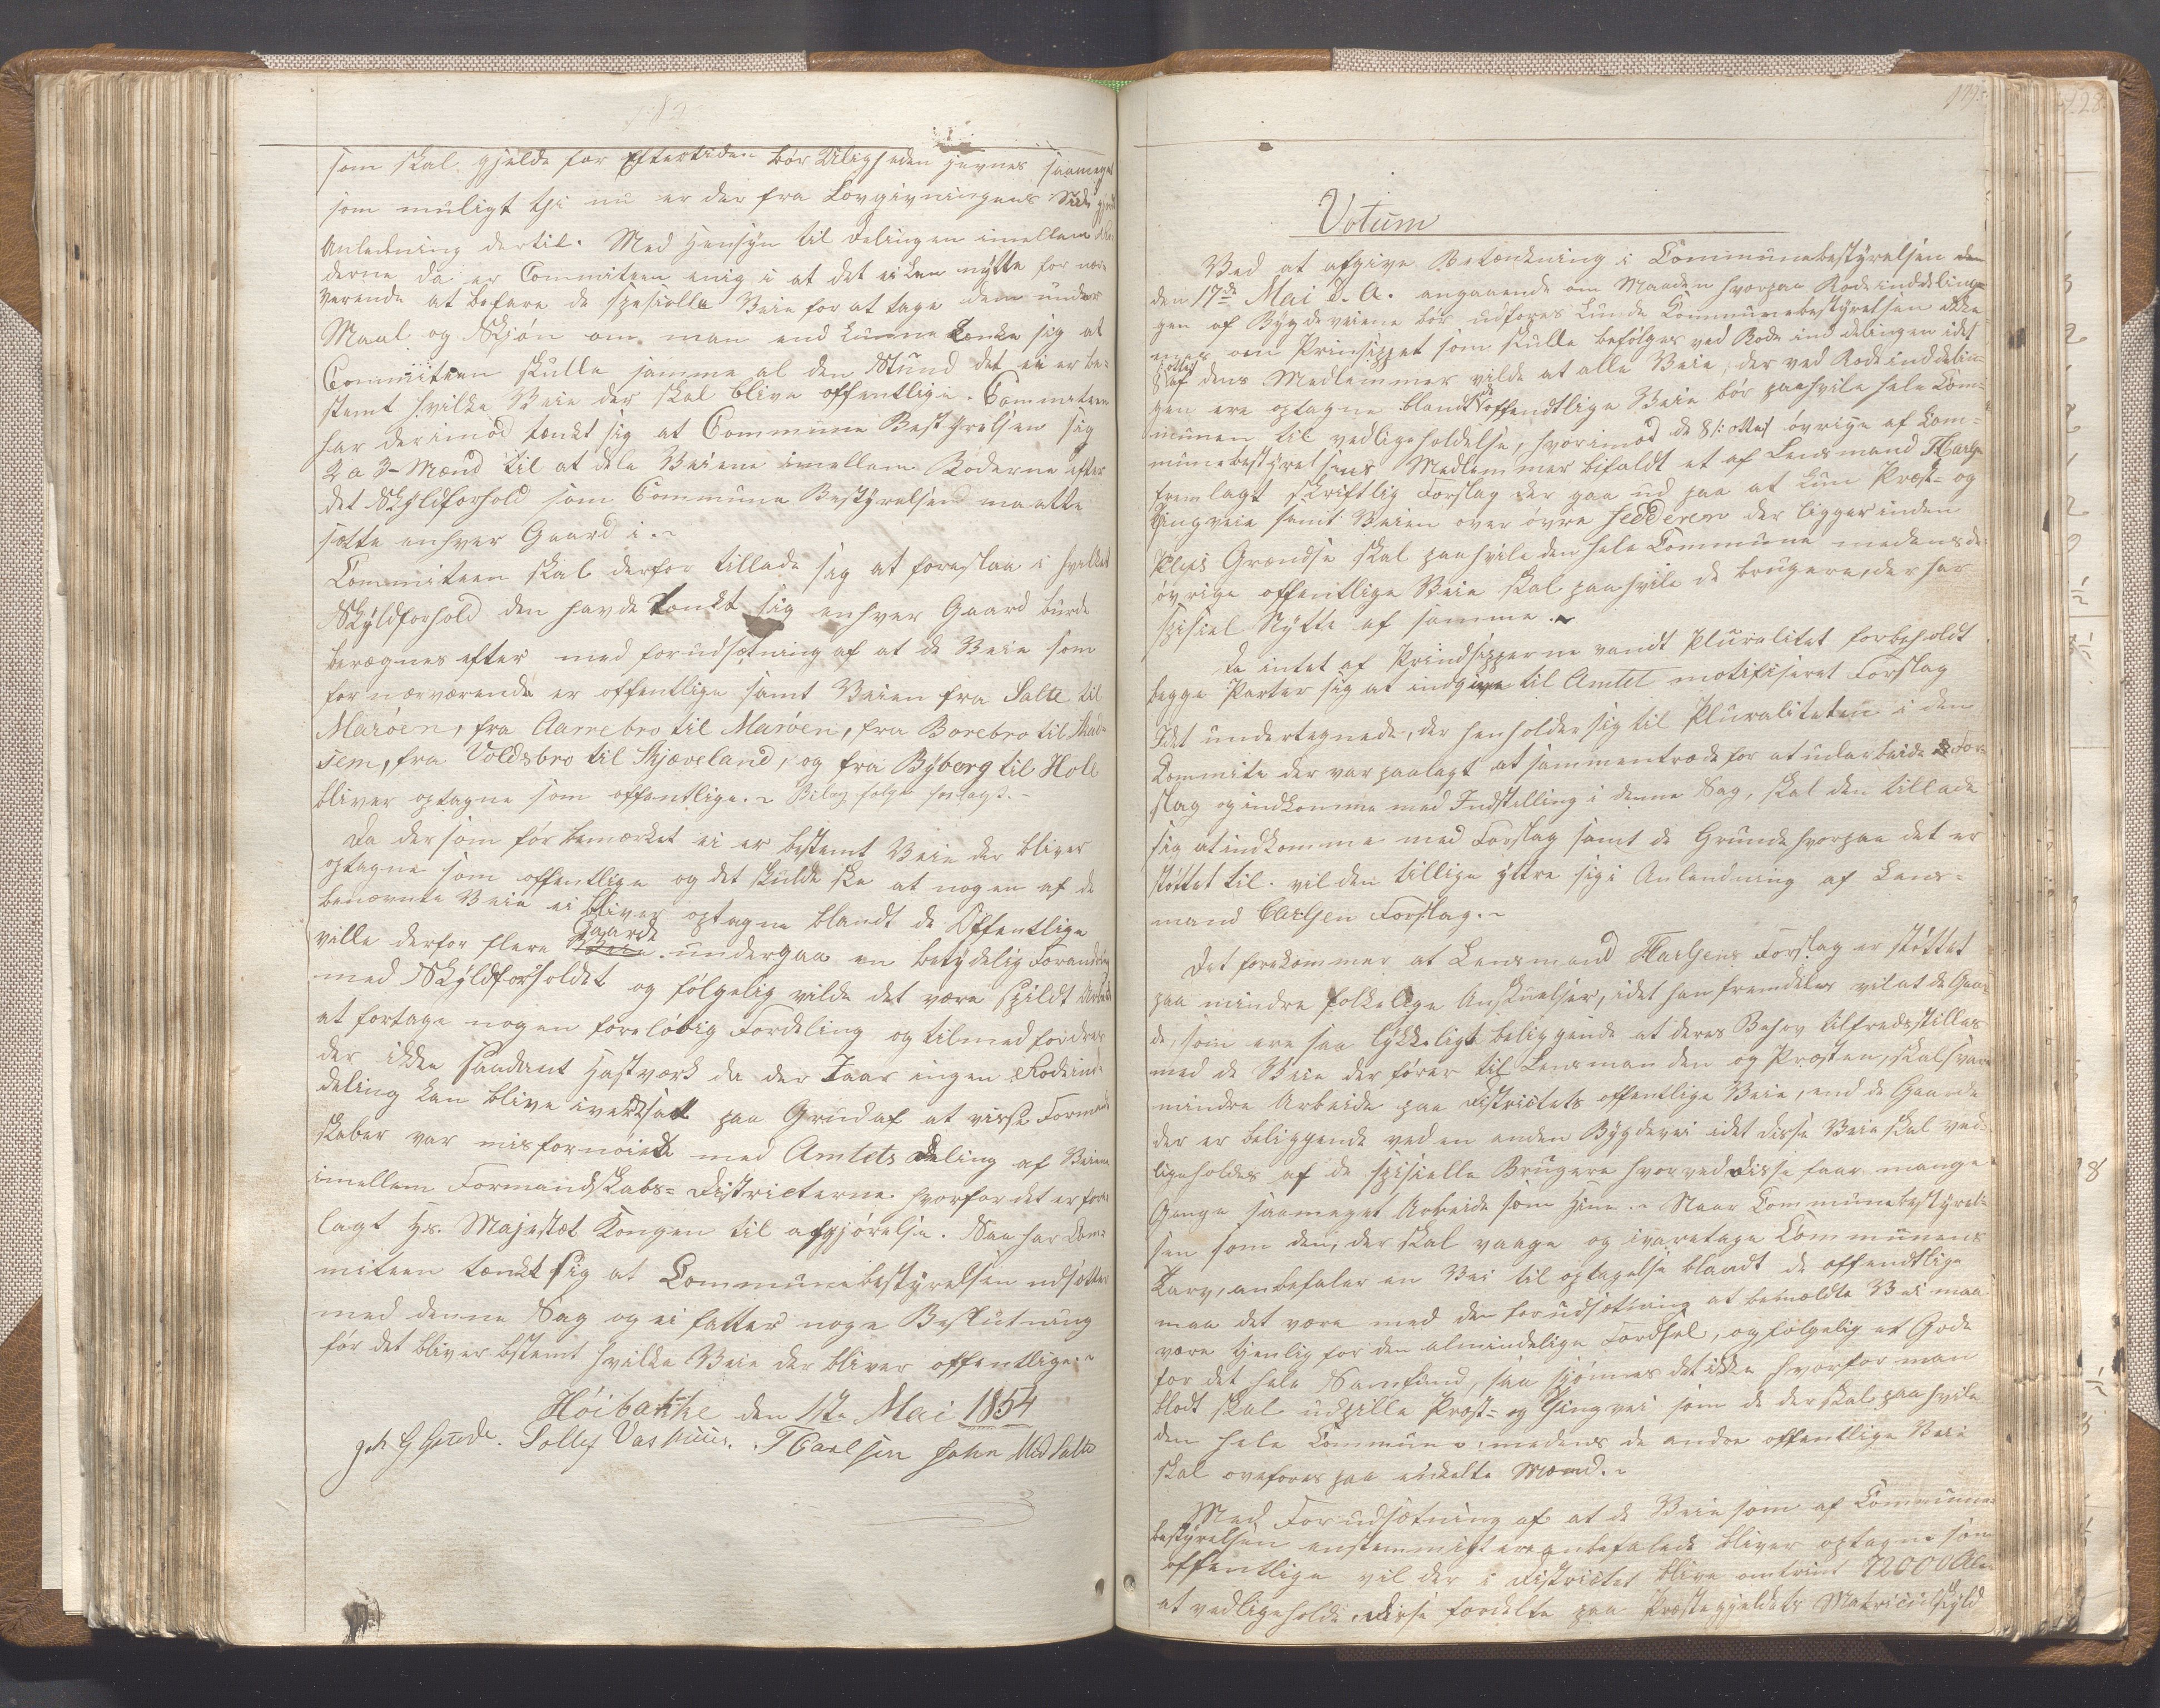 som skal gjelde for Eftertiden bør Uligheden jevnes saameget
som muligt thi nu er der fra Lovgivningens Side gjort
Anledning dertil. Med Hensyn til Delingen imellem
derne da er Commiteen enig i at det ei kan nytte for nær-
værende at befare de spesielle Veie for at tage dem under
Maal og Skjøn om man end kunne tænke sig at
Commiteen skulle samme al den Stund det ei er be-
stemt hvilke Veie der skal blive offentlige. Commiteen
har derimod tænkt sig at Commune Bestyrelsen
2 a 3 Mænd til at dele Veiene imellem Roderne efter
det Skyldforhold som Commune Bestyrelsen maatte
sætte enhver Gaard i.
Commiteen skal derfor tillade sig at foreslaa i hvilket
Skyldforhold den havde tænkt sig enhver Gaard burde
beregnes efter med forudsætning af at de Veie som
for nærværende er offentlige samt Veien fra Salte til
Marøen, fra Aarrebro til Marøen, fra Borebro til
sem, fra Voldsbro til Skjæveland, og fra Byberg til Hole
bliver optagne som offentlige. Bilag følger
Da der som før bemærket ei er bestemt Veie der bliver
optagne som offentlige og det skulde ske at nogen af de
benævnte Veie ei bliver optagne blandt de Offentlige
ville derfor flere Gaarde undergaa en betydelig Forandring
med Skyldforholdet og følgelig vilde det være spildt Arbeide
at fortage nogen foreløbig Fordeling og tilmed fordres
der ikke saadant Hastværk da der Iaar ingen Rodeind-
deling kan blive iverksatt paa Grund af at visse Formand
skaber var misfornøiede med Amtets Deling af Veiene
imellem Formandskabs-Districterne hvorfor det er fore
lagt Hs. Majestæt Kongen til afgjørelse. Saa har Com-
miteen tænkt sig at Communebestyrelsen udsætter
med denne Sag og ei fatter noge Beslutning
før det bliver bstemt hvilke Veie der bliver offentlige.
Høibakke den 1ste Mai 1854
G Grude. Tollef Vasshuus. T Carlsen John Salte
Votum
Ved at afgive Betænkning i Communebestyrelsen den
den 17de Mai d. A. angaaende om Maaden hvorpaa Rodeinddelin-
gen af Bygdeveiene bør udføres kunde Communebestyrelsen ikke
enes om Prinsippet som skulle befølges ved Rodeinddelingen idet
8 /: otte :/ af dens Medlemmer vilde at alle Veie, der ved Rodeinddelin-
gen ere optagne blandt de offendtlige Veie bør paahvile hele Com-
munen til vedligeholdelse, hvorimod de 8 /: otte :/ øvrige af Com-
munebestyrelsens Medlemmer bifaldt et af Lensmand TCarlsen
fremlagt skriftlig Forslag der gaa ud paa at kun Præst- og
Thingveie samt Veien over øvre Jedderen der ligger inden
Klep's Grændse skal paahvile den hele Commune medens de
øvrige offentlige Veie skal paahvile de brugere, der har
spesiel Nytte af samme.
Da intet af Prindsipperne vandt Pluralitet forbeholdt
begge Parter sig at indgive til Amtet motifiseret Forslag
Idet undertegnede, der henholder sig til Pluraliteten i den
Kommite der var paalagt at sammentræde for at udarbeide For-
slag og indkomme med Indstilling i denne Sag, skal den tillade
sig at indkomme med Forslag samt de Grunde hvorpaa det er
støttet til. vil den tillige yttre sig i Anledning af Lens-
mand Carlsen Forslag.
Det forekommer at Lensmand TCarlsens Forslag er støttet
paa mindre folkelige Anskuelser, idet han fremdeles vil at de Gaar-
de, som ere saa lykkeligt beliggende at deres Behov tilfredsstilles
med de Veie der fører til Lensmanden og Præsten, skal svare
mindre Arbeide paa Districtets offentlige Veie, end de Gaarde
der er beliggende ved en anden Bygdevei idet disse Veie skal ved-
ligeholdes af de spisielle Brugere hvorved disse faar mange
Gange saameget Arbeide som hine. Naar Communebestyrel-
sen som den, der skal vaage og ivaretage Communens
Tarv, anbefaler en Vei til optagelse blandt de offendtlige
maa det være med den forudsætning at bemældte Vei maa
være tjenlig for den almindelige Færdsel, og følgelig et Gode
for det hele Samfund, saa skjønnes det ikke hvorfor man
blodt skal udpille Præst- og Thingvei som de der skal paahvile
den hele Commune, medens de andre offentlige Veie
skal oveføres paa enkelte Mænd.
Med Forudsætning af at de Veie som af Commune-
bestyrelsen enstemmigt ere anbefalede bliver optagne som
offentlige vil der i Districtet blive omtrent 72000 Alen
at vedligeholde. Disse fordelte paa Præstegjeldets Matriculskyld